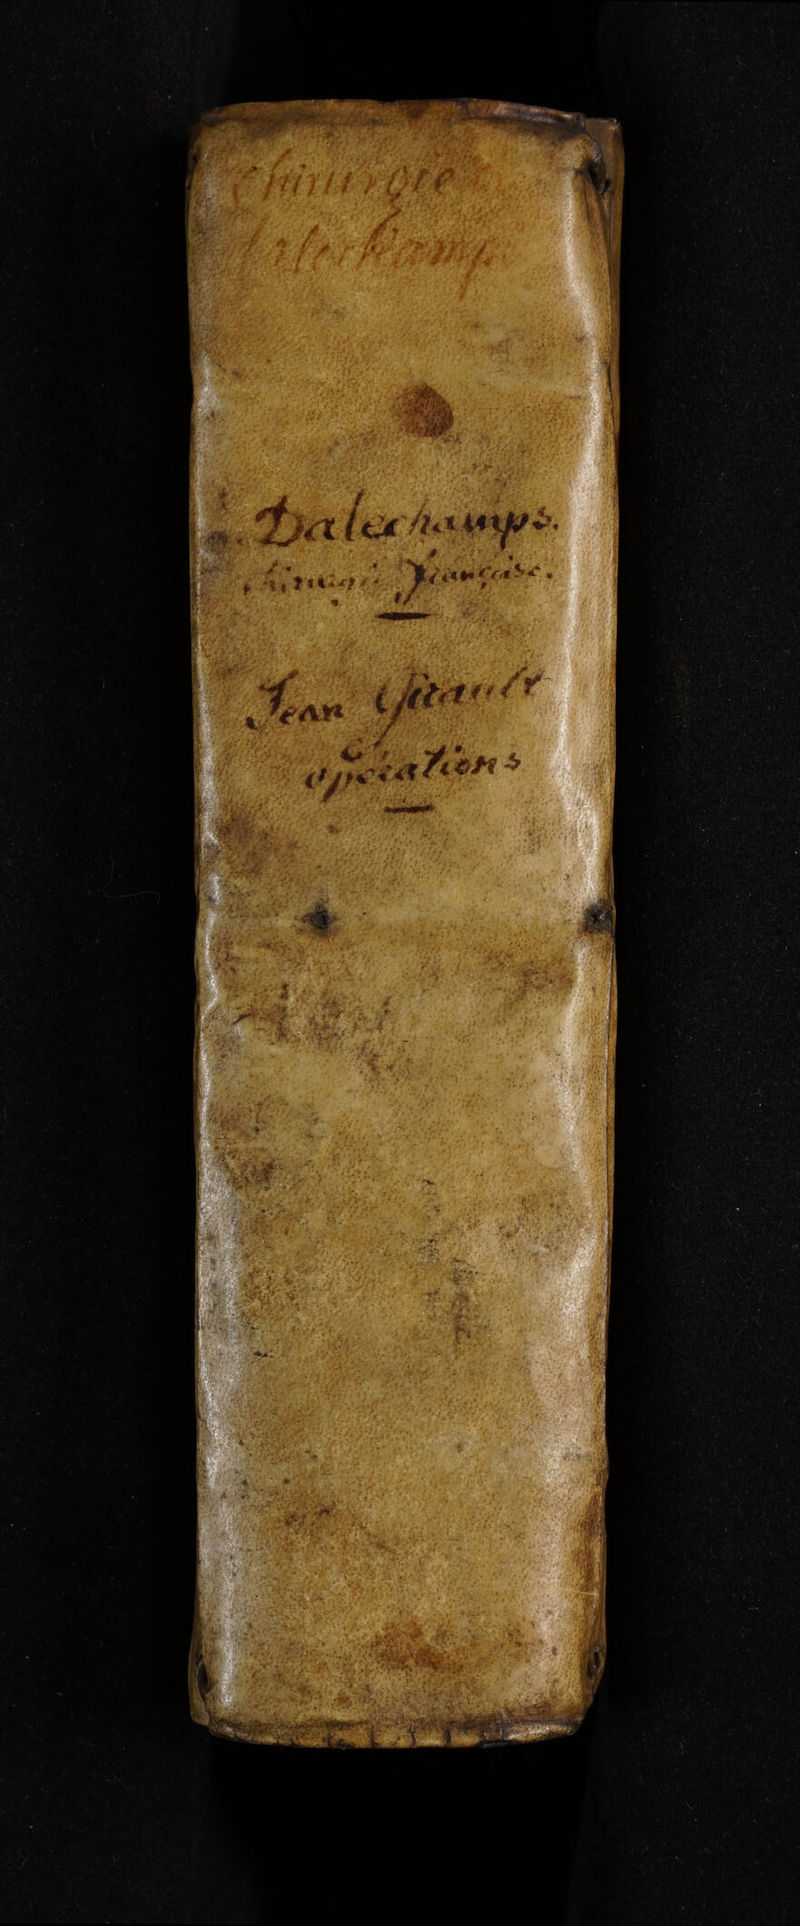 Chirurgie
dalechamps
Dalechamps.
chirurgie françoise.
Jean Girault
operations